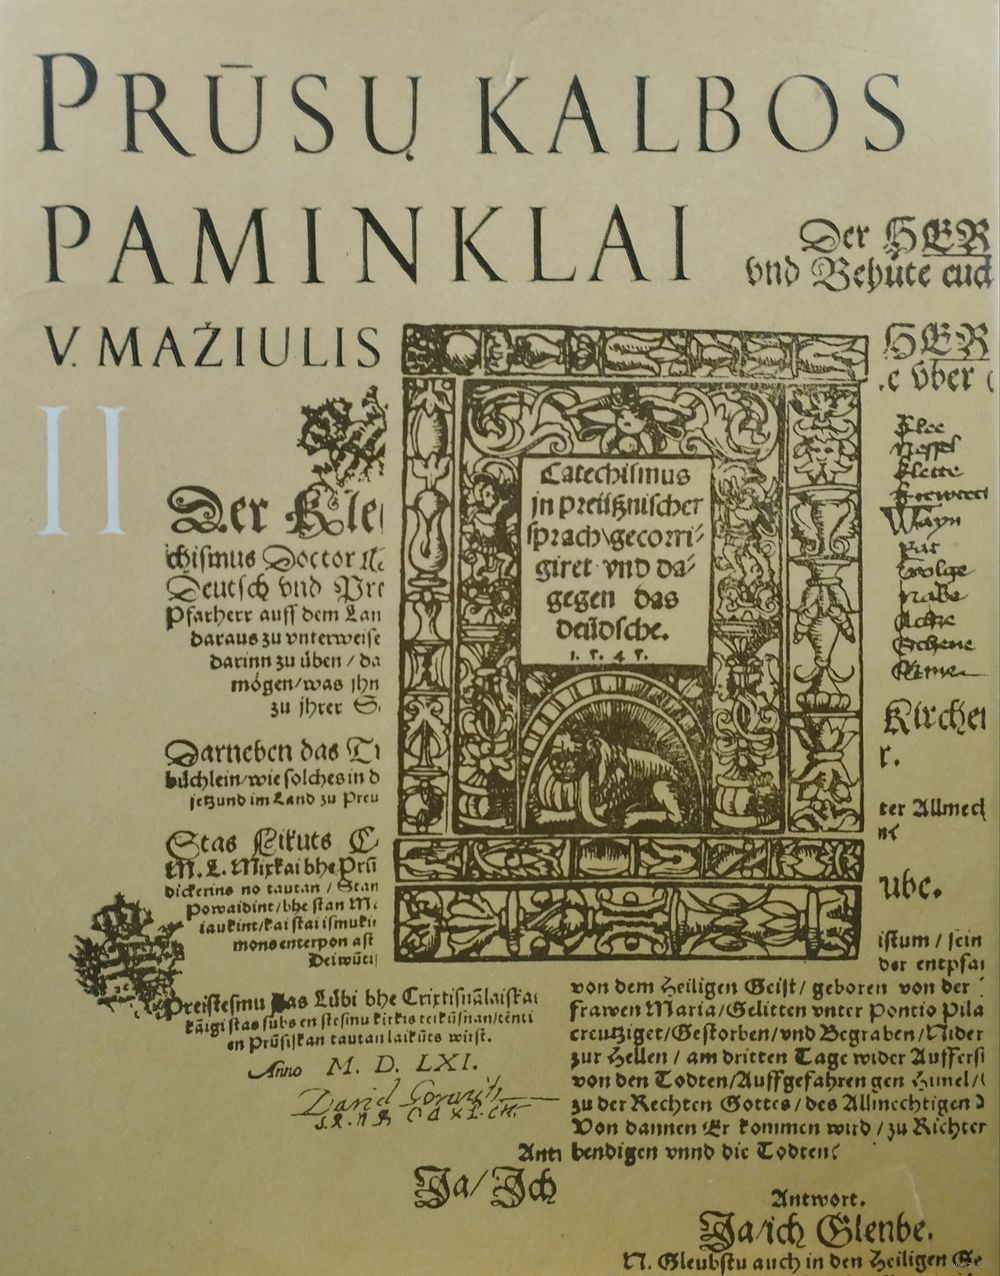 PRŪSŲ KALBOS
PAMINKLAI
V. MAŽIULIS
II
Der HER
vnd Behüte euch
HER
.e vber
Klee
Nessel
Klette
Wayn
Rat
Wolge
Nabe
Achze
Schene
Catechismus
jn preüßnischer
sprach\gecorri-
giret vnd da-
gegen das
deüdsche.
1.5.45.
Der Kle
chismus Doctor
Deutsch vnd Pre
Pfarherr auff dem Lan
daraus zu vnterweise
darinn zu üben / da
mögen/was jhn
zu jhrer S
Darneben das T
büchlein/wie solches in d
jetzund im Land zu Preu
Stas Likuts C
M. L. Mixkai bhe Prū
dickerins no tautan / Stan
Powaidint/bhe stan M
iaukint/kai stai ismukin
mons enterpon ast
Deiwūtis
Preistesmu stas Lūbi bhe Crixtisnālaiskai
kāigi stas subs en stesmu kirkis teikūsnan/tēnti
en Prūsiskan tautan laikūts wirst.
Anno M. D. LXI.
David
Kirchen
r.
ter Allmech
ube.
istum / sein
der entpfan
von dem Heiligen Geist / geboren von der
frawen Maria/Gelitten vnter Pontio Pila
creutziget/Gestorben/vnd Begraben/Nider
zur Hellen / am dritten Tage wider Aufferst
von den Todten/Auffgefahren gen Himel/
zu der Rechten Gottes / des Allmechtigen
Von dannen Er kommen wird / zu Richten
bendigen vnnd die Todten
Ant
Ja/ Ich
Antwort.
Ja/ich Glenbe.
N. Gleubstu auch in den Heiligen Ge